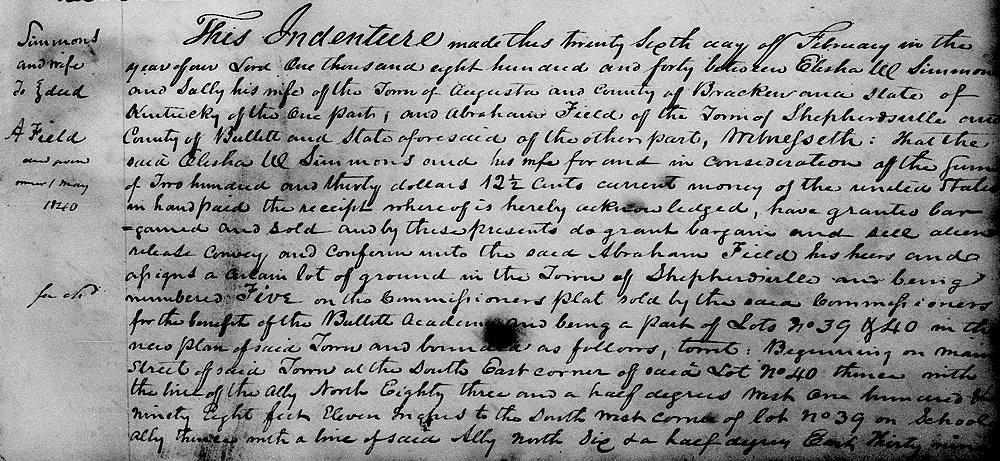 Simmons
and wife
To } deed
A Field
1 May
1840
This Indenture made this twenty Sixth day off February in the
year of our Lord One thousand eight hundred and forty between Elisha W Simmons
and Sally his wife of the Town of Augusta and County of Bracken and State of
Kentucky of the One part, and Abraham Field of the Town of Shepherdsville and
County of Bullett and State aforesaid of the other part, Witnesseth: that the
said Elisha W Simmons and his wife for and in consideration off the Sum
of Two hundred and thirty dollars 12½ Cents current money of the united States
in hand paid the receipt where of is hereby acknowledged, have granted bar-
-gained and sold and by these presents do grant bargain and sell alien
release Convey and Confirm unto the said Abraham Field his heirs and
assigns a certain lot of ground in the Town off Shepherdsville and being
numbered Five on the Commissioners plat sold by the said Commissioners
for the benefit of the Bullett Academy and being a part of Lots No 39 & 40 in the
new plan of said Town and bounded as follows, towit: Beginning on main
Street of said Town at the South East corner of said Lot No 40 thence with
the line of the Ally North Eighty three and a half degrees West One hundred &
ninety Eight feet Eleven inches to the South West corner of lot No 39 on School
Ally thence with a line of said Ally North Six & a half degrees East Thirty nine